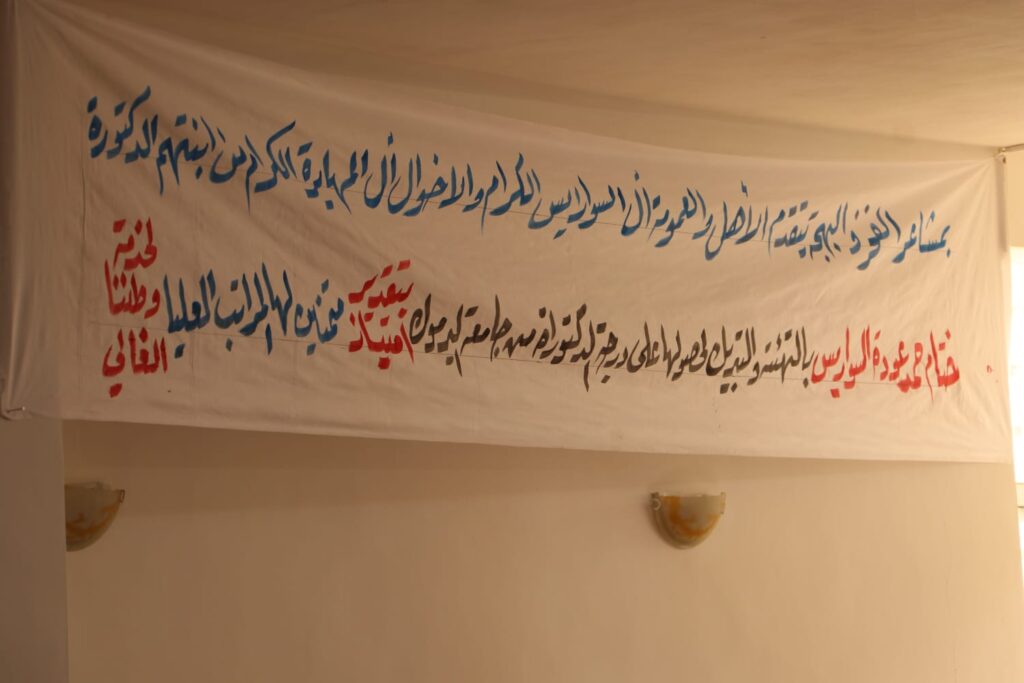 بمشاعر الفخر والبهجة يتقدم الأهل والعمومة آل السواريس الكرام والاخوال آل المهايرة الكرام من ابنتهم الدكتورة
ختام حمد عودة السواريس بالتهنئة والتبريك لحصولها على درجة الدكتوراة من جامعة اليرموك بتقدير امتياز متمنين لها المراتب العليا لخدمة وطننا الغالي